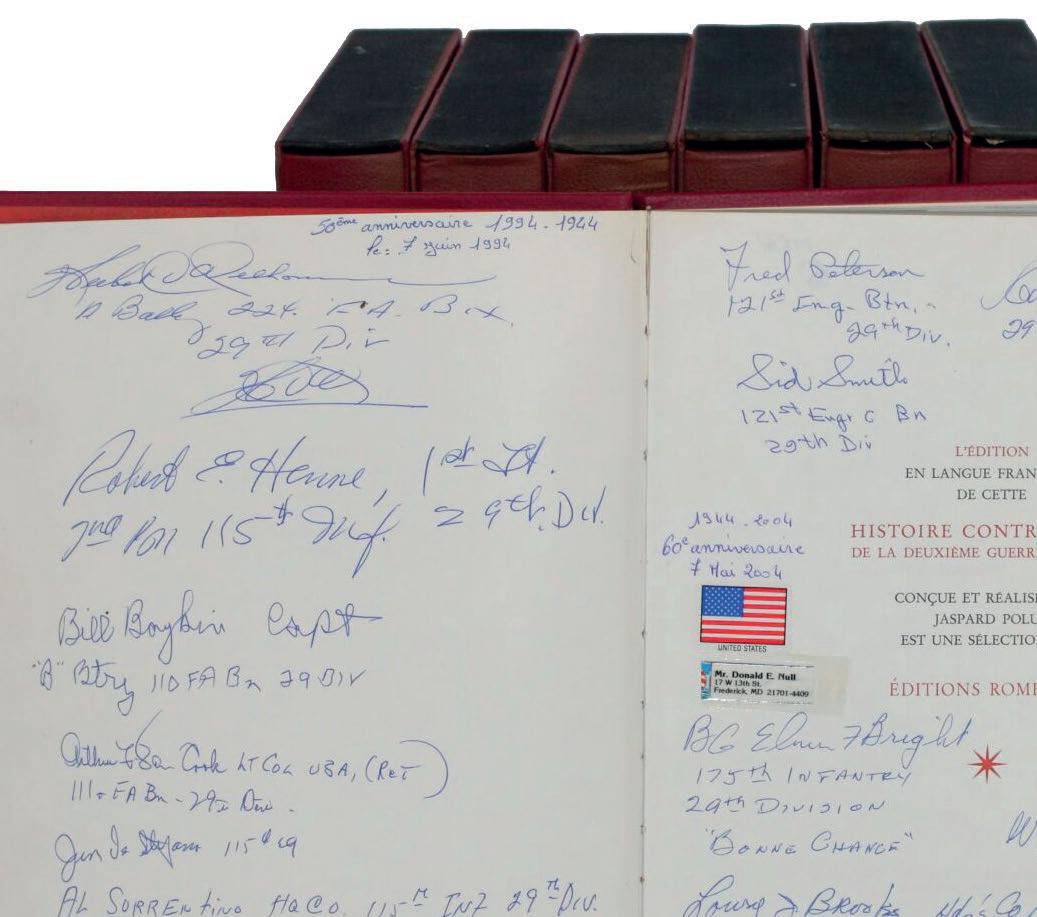 50ème anniversaire 1994 - 1944
le: 7 juin 1994
224. F.A. Bn.
29TH Div
Robert E. Henne, 1st Lt.
2nd Bn 115th Inf. 29th. Div.
Bill Boykin Capt
"B" Btry 110 FA Bn 29 DIV
Cook LT COL USA, (Ret)
111th FA Bn - 29th Div.
115th 29
AL SORRENtino HQ Co. 115th INF 29th Div.
Fred Peterson
121st Eng. Btn,
29th Div.
29
Sid Smith
121st Engr C Bn
29th Div
L'ÉDITION
EN LANGUE FRAN
DE CETTE
HISTOIRE CONTR
DE LA DEUXIÈME GUERR
1944 - 2004
60e anniversaire
7 Mai 2004
CONÇUE ET RÉALIS
JASPARD POLU
EST UNE SÉLECTIO
UNITED STATES
Mr. Donald E. Null
17 W 13th St.
Frederick, MD 21701-4409
ÉDITIONS ROMB
BG Elmer F Bright
175th INFANTRY
29th DIVISION
"BONNE CHANCE"
Brooks